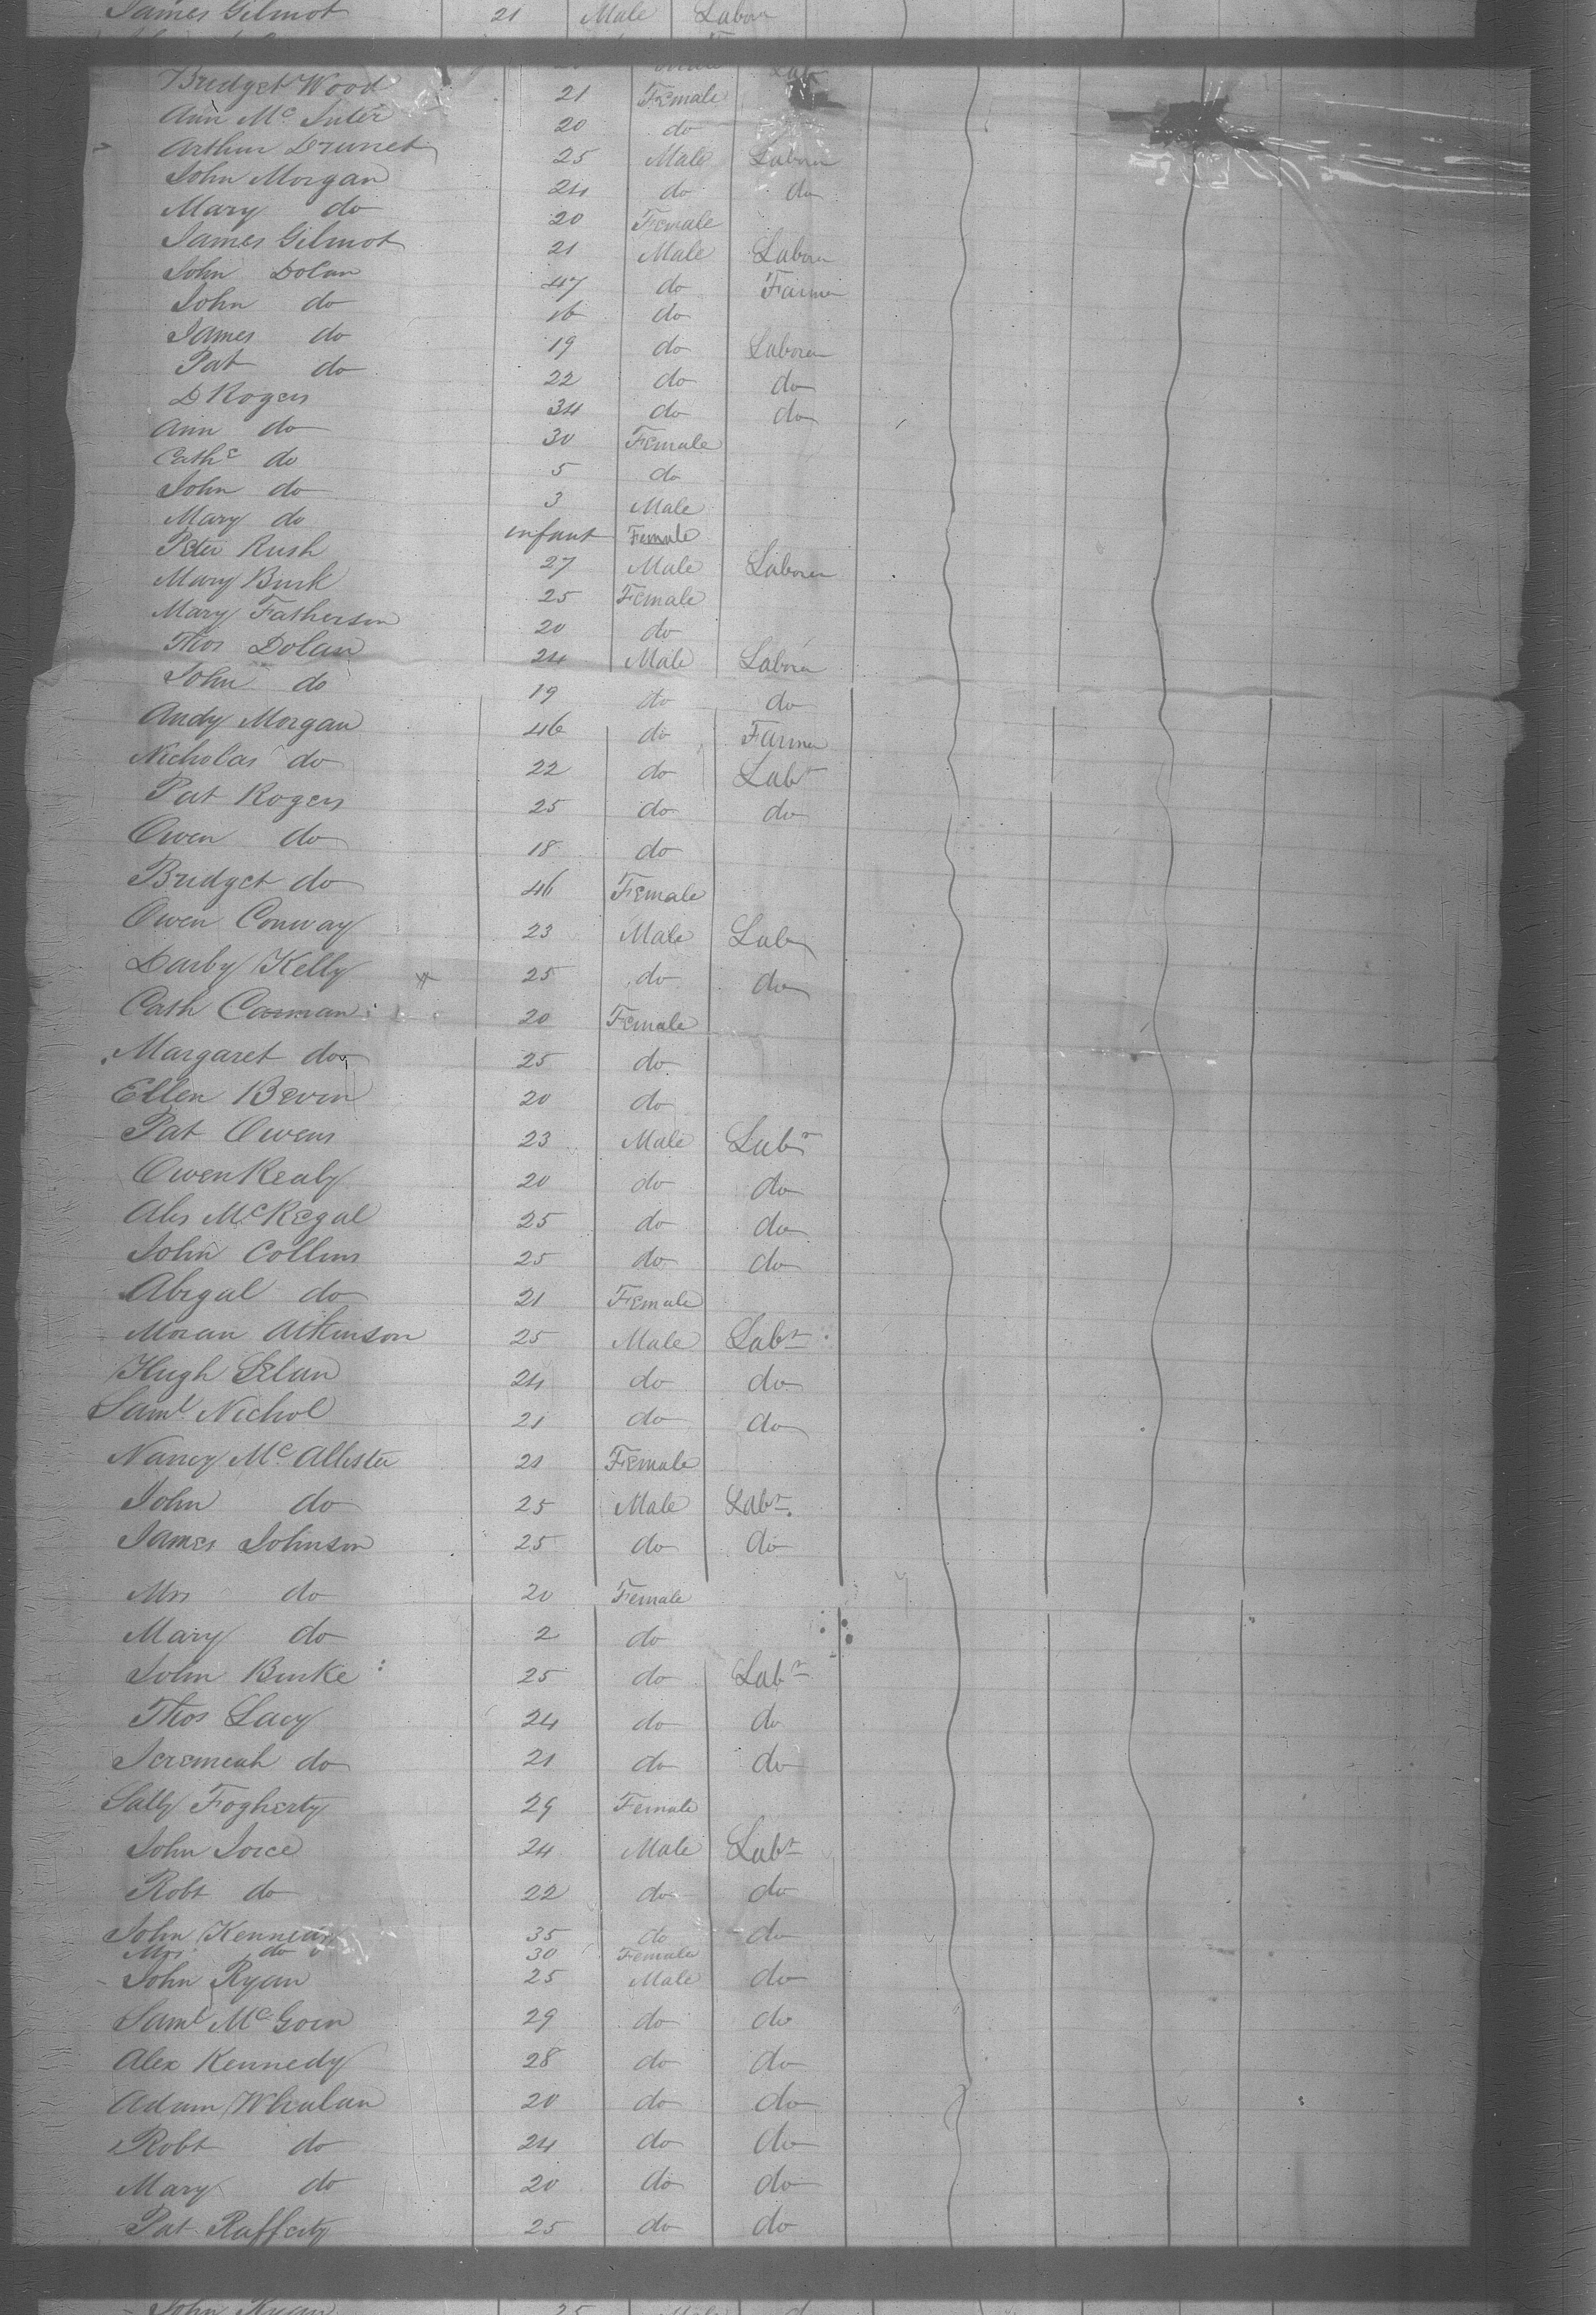 James Gilmot 21 Male Labor
Bridget Wood 21 Female
Ann Mc Inter 20 do
Arthur Drunet 25 Male Laborer
John Morgan 24 do do
Mary do 20 Female
James Gilmot 21 Male Labor
John Dolan 47 do Farmer
John do 16 do
James do 19 do Laborer
Pat do 22 do do
D Rogers 34 do do
Ann do 30 Female
Cathe do 5 do
John do 3 Male
Mary do infant Female
Peter Rush 27 Male Laborer
Mary Burk 25 Female
Mary Fatherson 20 do
Thos Dolan 24 Male Laborer
John do 19 do do
Andy Morgan 46 do Farmer
Nicholas do 22 do Labr
Pat Rogers 25 do do
Owen do 18 do
Bridget do 46 Female
Owen Conway 23 Male Lab
Darby Kelly 25 do do
Cath Corman 20 Female
Margaret do 25 do
Ellen Bevin 20 do
Pat Owens 23 Male Labr
Owen Realy 20 do do
Als McRegal 25 do do
John Collins 25 do do
Abigal do 21 Female
Moran Atkinson 25 Male Labr
Hugh Selan 24 do do
Saml Nichol 21 do do
Nancy Mc Allister 21 Female
John do 25 Male Labr
James Johnson 25 do do
Mrs do 20 Female
Mary do 2 do
John Burke 25 do Labr
Thos Lacy 24 do do
Jeremiah do 21 do do
Sally Fogherty 29 Female
John Joice 24 Male Labr
Robt do 22 do do
John Kennedy 35 do do
Mrs do 30 Female
John Ryan 25 Male do
Saml McGoen 29 do do
Alex Kennedy 28 do do
Adam Whalan 20 do do
Robt do 24 do do
Mary do 20 do do
Pat Rafferty 25 do do
John Ryan 25 Male d